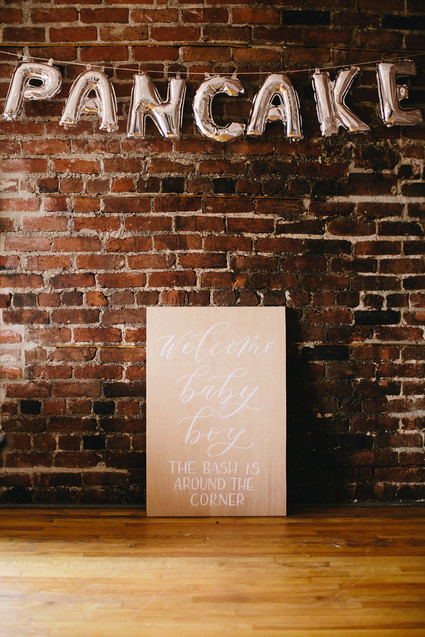 PANCAKE
Welcome
baby
boy
THE BASH IS
AROUND THE
CORNER